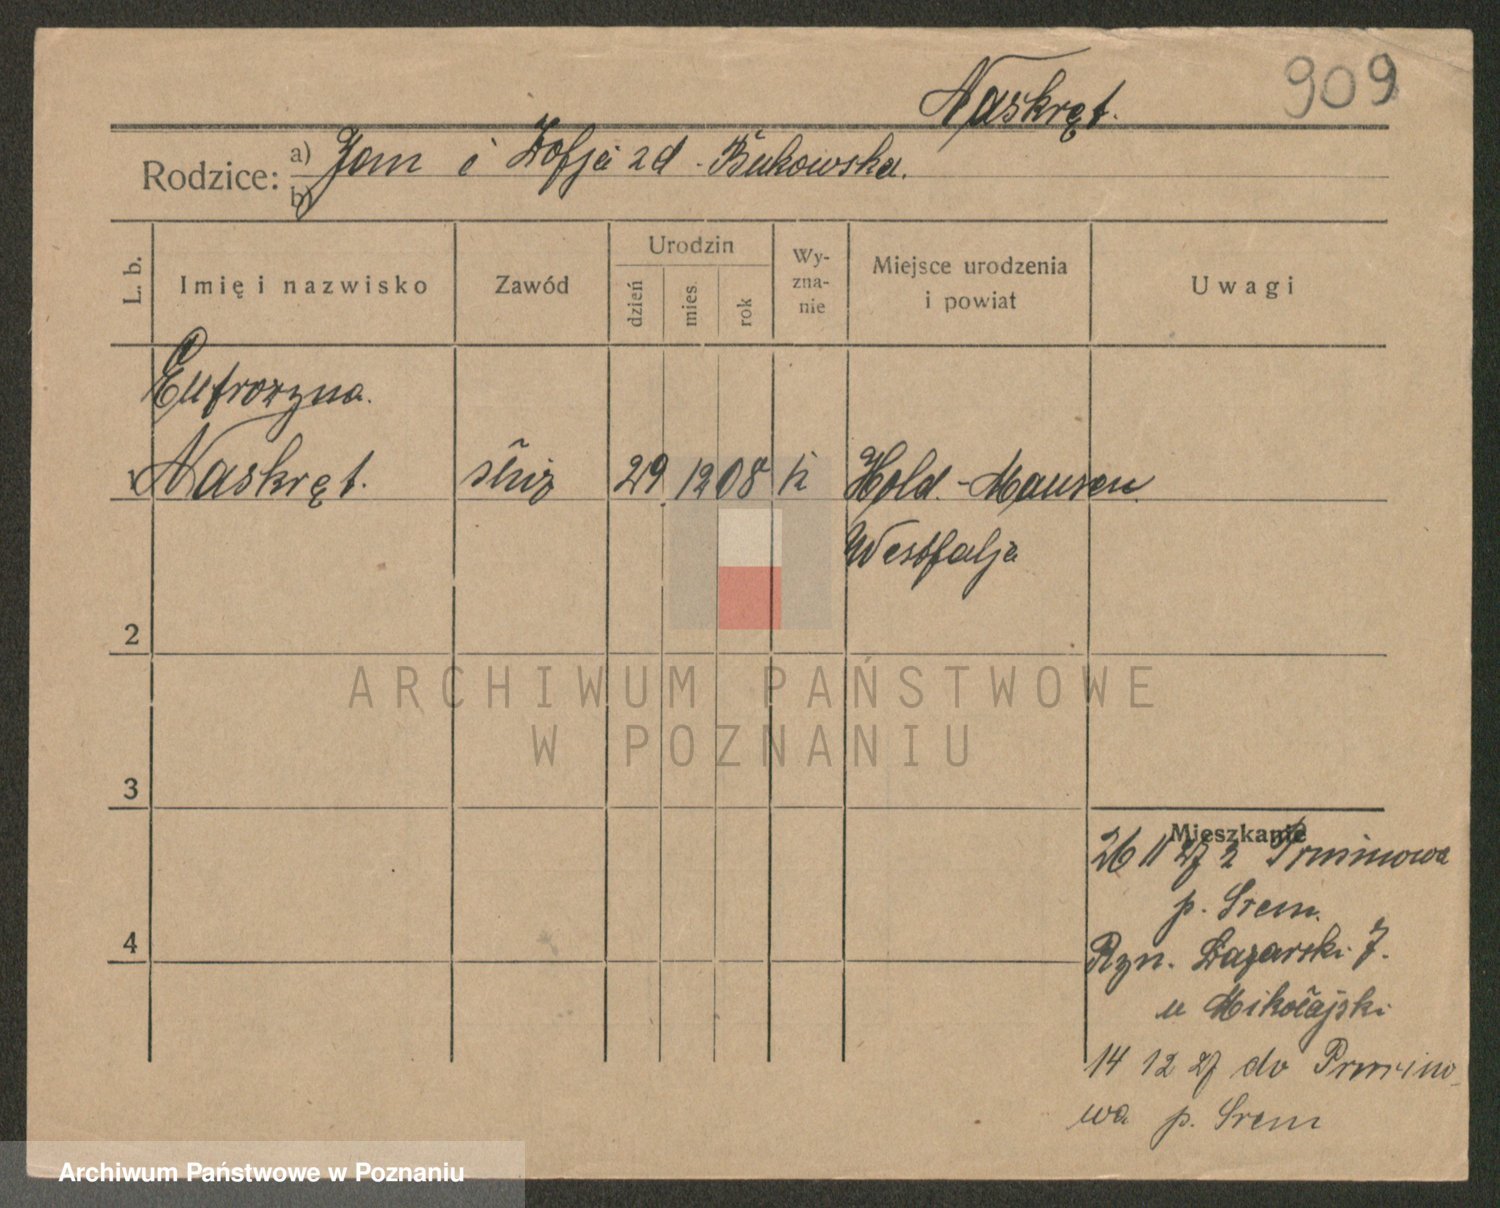 Naskręt.
909
Rodzice: a) Jan i Zofja zd. Bukowska.
b)
L. b.
Imię i nazwisko
Zawód
Urodzin
dzień
mies.
rok
Wy-
zna-
nie
Miejsce urodzenia
i powiat
Uwagi
Eufrozyna.
1 Naskręt. służ 29 12 08 k Hold.-Mausen
Westfalja
2
ARCHIWUM PAŃSTWOWE
W POZNANIU
3
Mieszkanie
26 11 27 z
p. Śrem.
Ryn. Łazarski 7.
u Mikołajski
14 12 27 do
wa p. Śrem
4
Archiwum Państwowe w Poznaniu